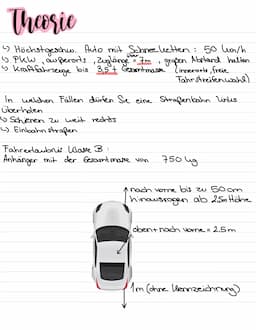 Theorie
↳ Höchstgeschw. Auto mit Schneeketten : 50 km/h
↳ PKW, außerorts, Zuglänge über 7m, großen Abstand halten
↳ Kraftfahrzeuge bis 3,5 t Gesamtmasse (innerorts, freie
Fahrstreifenwahl)
In welchen Fällen dürfen Sie eine Straßenbahn links
überholen
↳ Schienen zu weit rechts
↳ Einbahnstraßen
Fahrerlaubnis Klasse B:
Anhänger mit der Gesamtmasse von 750 kg
nach vorne bis zu 50 cm
hinausragen ab 2,5m Höhe
oben + nach vorne = 2.5 m
1m (ohne Kennzeichnung)